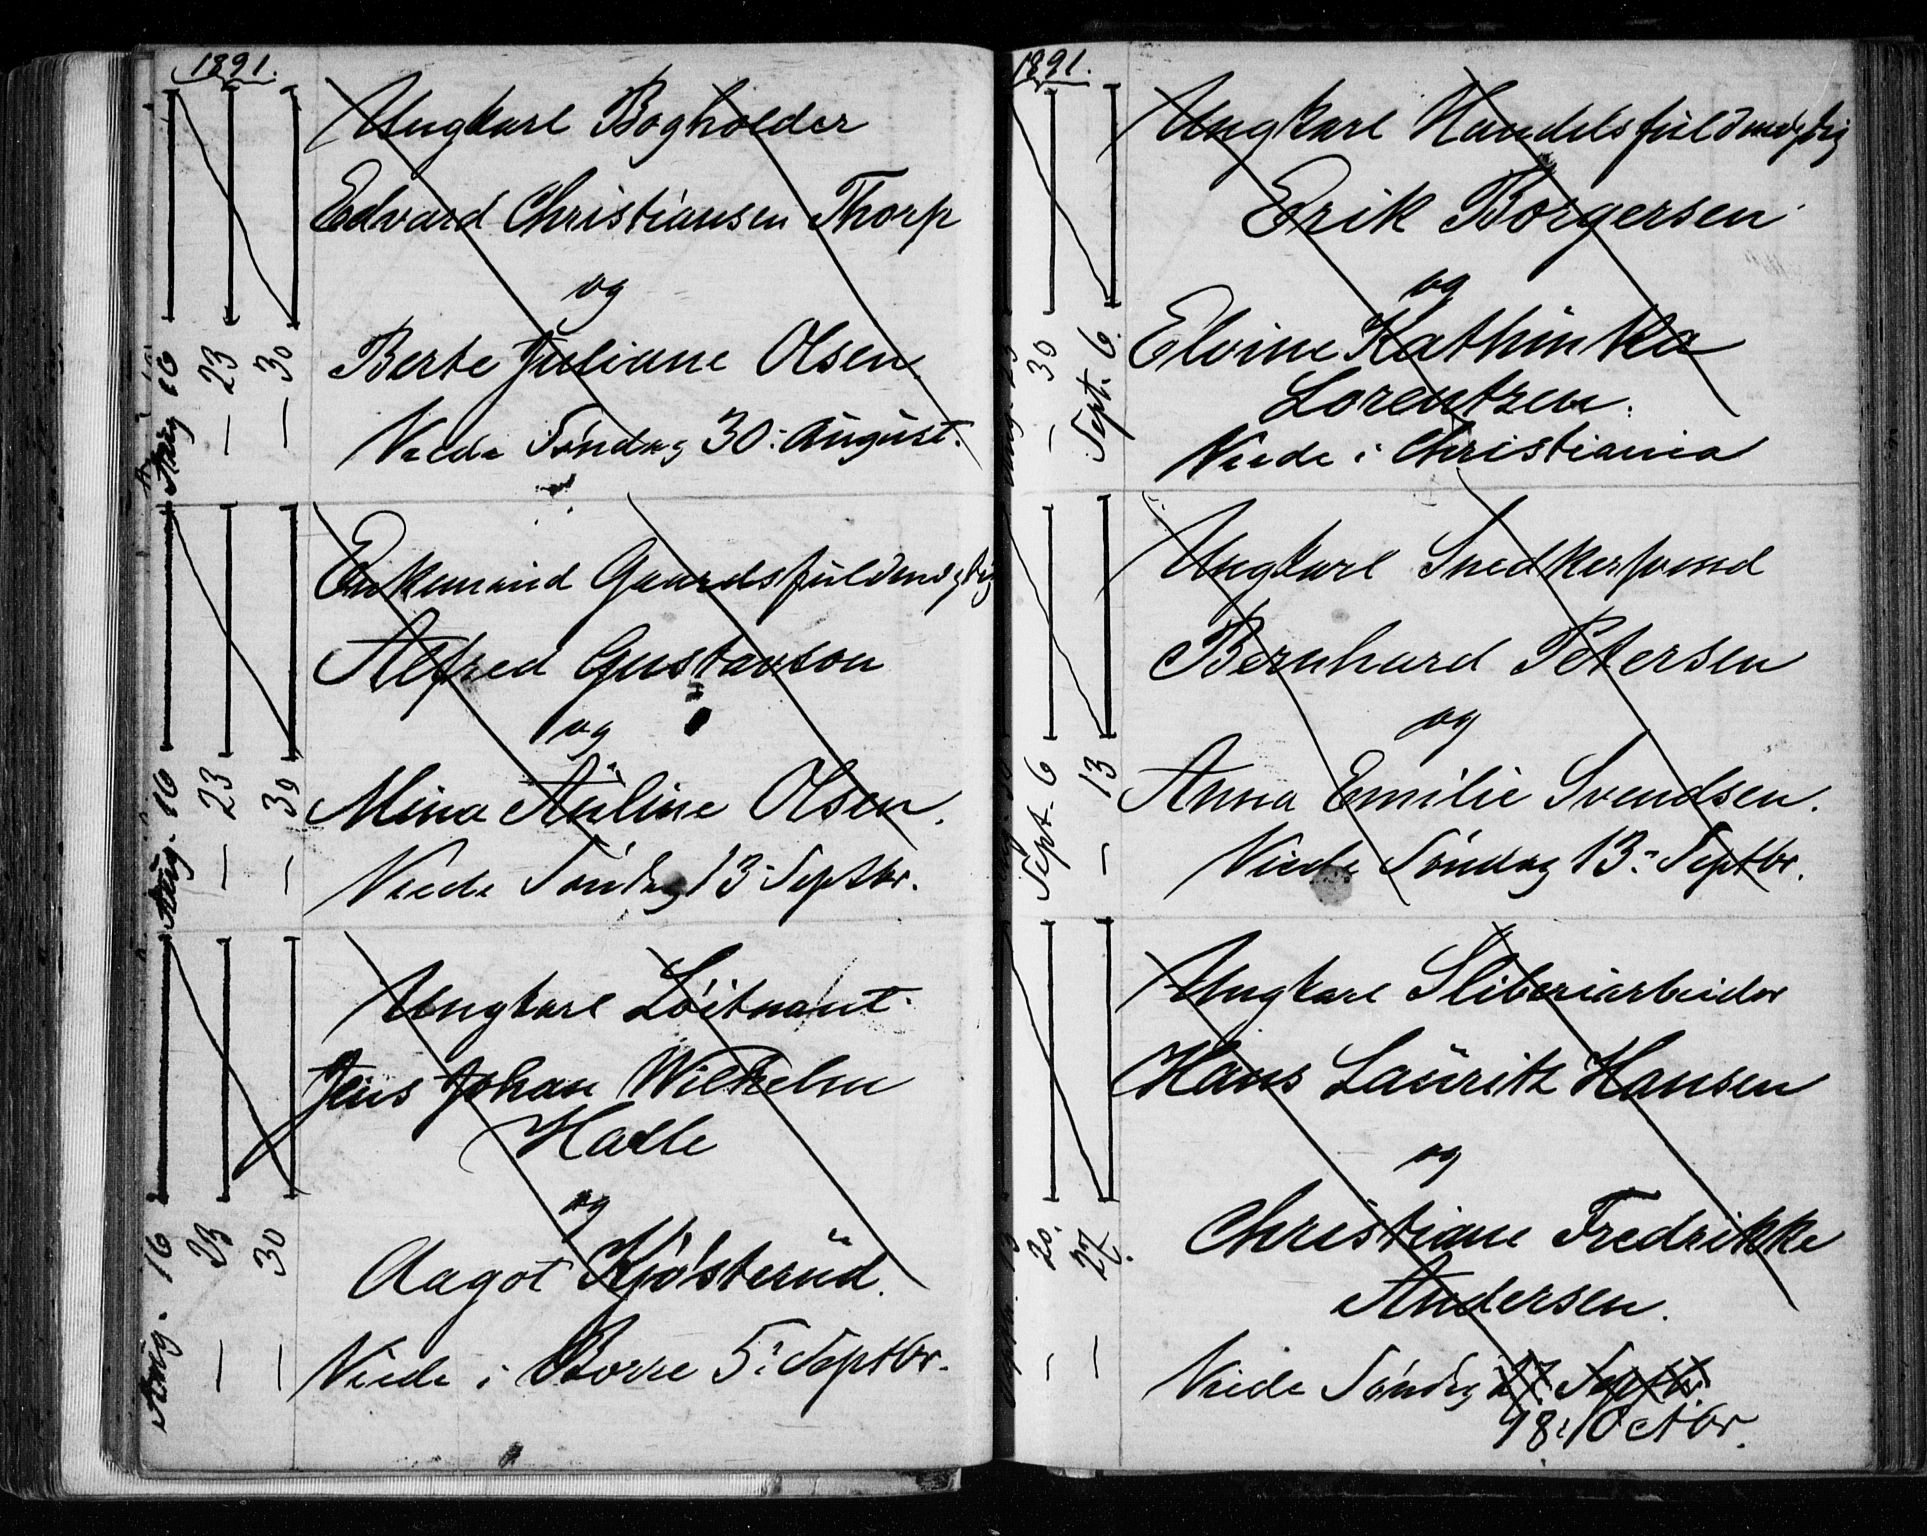 1891.
Aug 16
— 23
— 30
Ungkarl Bogholder
Edvard Christiansen Thorp
og
Berte Juliane Olsen.
Viede Søndag 30: August.
Aug. 16
— 23
— 30
Enkemand Gaardsfuldmægtig
Alfred Gustavson
og
Mina Auline Olsen.
Viede Søndag 13: Septbr.
Aug. 16
— 23
— 30
Ungkarl Løitnant
Jens Johan Wilhelm
Halle
og
Aagot Kjøsterud.
Viede i Borre 5: Septbr.
1891.
— 30
Sept. 6.
Ungkarl Handelsfuldmægtig
Erik Borgersen
og
Elvine Kathinka
Lorentzen.
Viede i Christiania
Sept. 6
— 13
Ungkarl Snedkersvend
Bernhard Petersen
og
Anna Emilie Svendsen.
Viede Søndag 13: Septbr.
— 20.
— 27.
Ungkarl Sliberiarbeider
Hans Lauritz Hansen
og
Christiane Fredrikke
Andersen.
Viede Søndag 27 Septbr
18: Octbr.